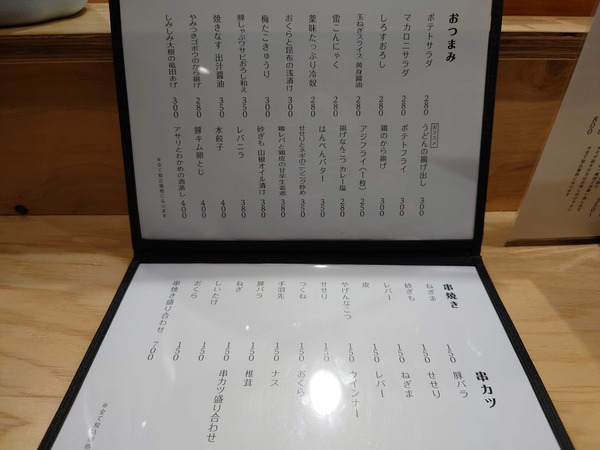 おつまみ
ポテトサラダ 280
マカロニサラダ 280
しろすおろし 280
玉ねぎスライス 黄身醤油 280
雷こんにゃく 280
薬味たっぷり冷奴 280
おくらと昆布の浅漬け 300
梅たこきゅうり 300
豚しゃぶワサビおろし和え 350
焼きなす 出汁醤油 350
やみつきゴボウのから揚げ 280
しみしみ大根の竜田あげ 300
うどんの揚げ出し 300
ポテトフライ 300
鶏のから揚げ 300
アジフライ(1枚) 250
揚げなんこつ カレー塩 280
はんぺんバター 350
せせりとネギのにんにく炒め 350
鶏レバと鶏皮の甘辛生姜煮 350
砂ぎも 山椒オイル漬け 380
レバニラ 380
水餃子 400
豚キム卵とじ 400
アサリとわかめの酒蒸し 400
串焼き
ねぎま 150
砂ぎも 150
レバー 150
皮 150
やげんなんこつ 150
せせり 150
つくね 150
手羽先 150
豚バラ 150
ねぎ 150
しいたけ 150
おくら 150
串焼き盛り合わせ 700
串カツ
豚バラ
せせり
ねぎま
レバー
ウインナー
おくら
ナス
椎茸
串カツ盛り合わせ
800